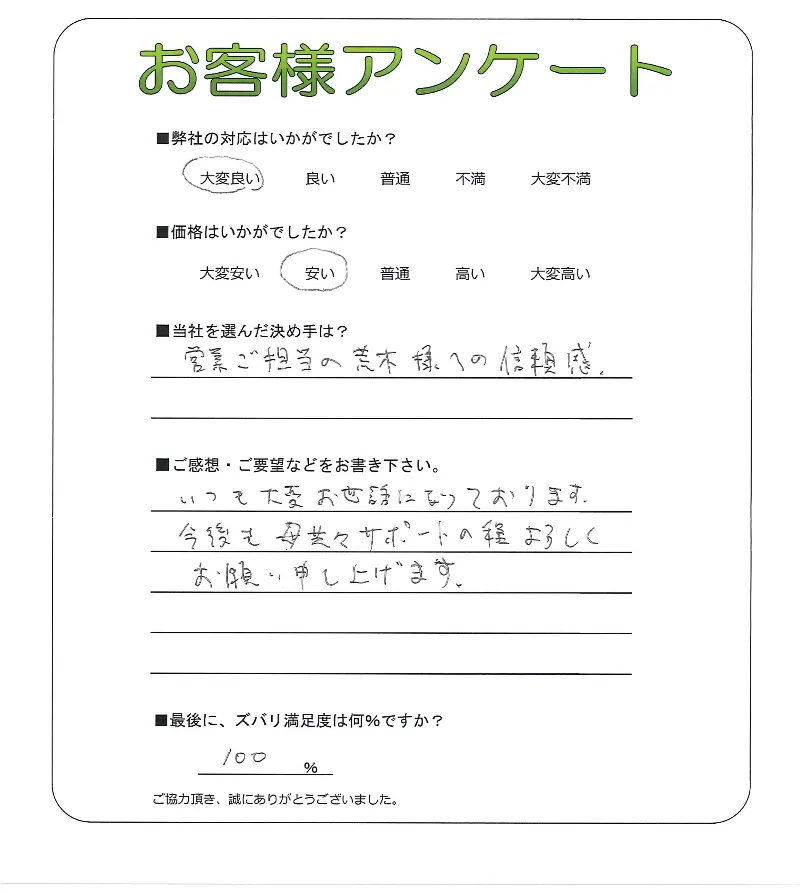 お客様アンケート
■弊社の対応はいかがでしたか？
大変良い 良い 普通 不満 大変不満
■価格はいかがでしたか？
大変安い 安い 普通 高い 大変高い
■当社を選んだ決め手は？
営業ご担当の荒木様への信頼感。
■ご感想・ご要望などをお書き下さい。
いつも大変お世話になっております。
今後も 共々サポートの程よろしく
お願い申し上げます。
■最後に、ズバリ満足度は何%ですか？
100 %
ご協力頂き、誠にありがとうございました。